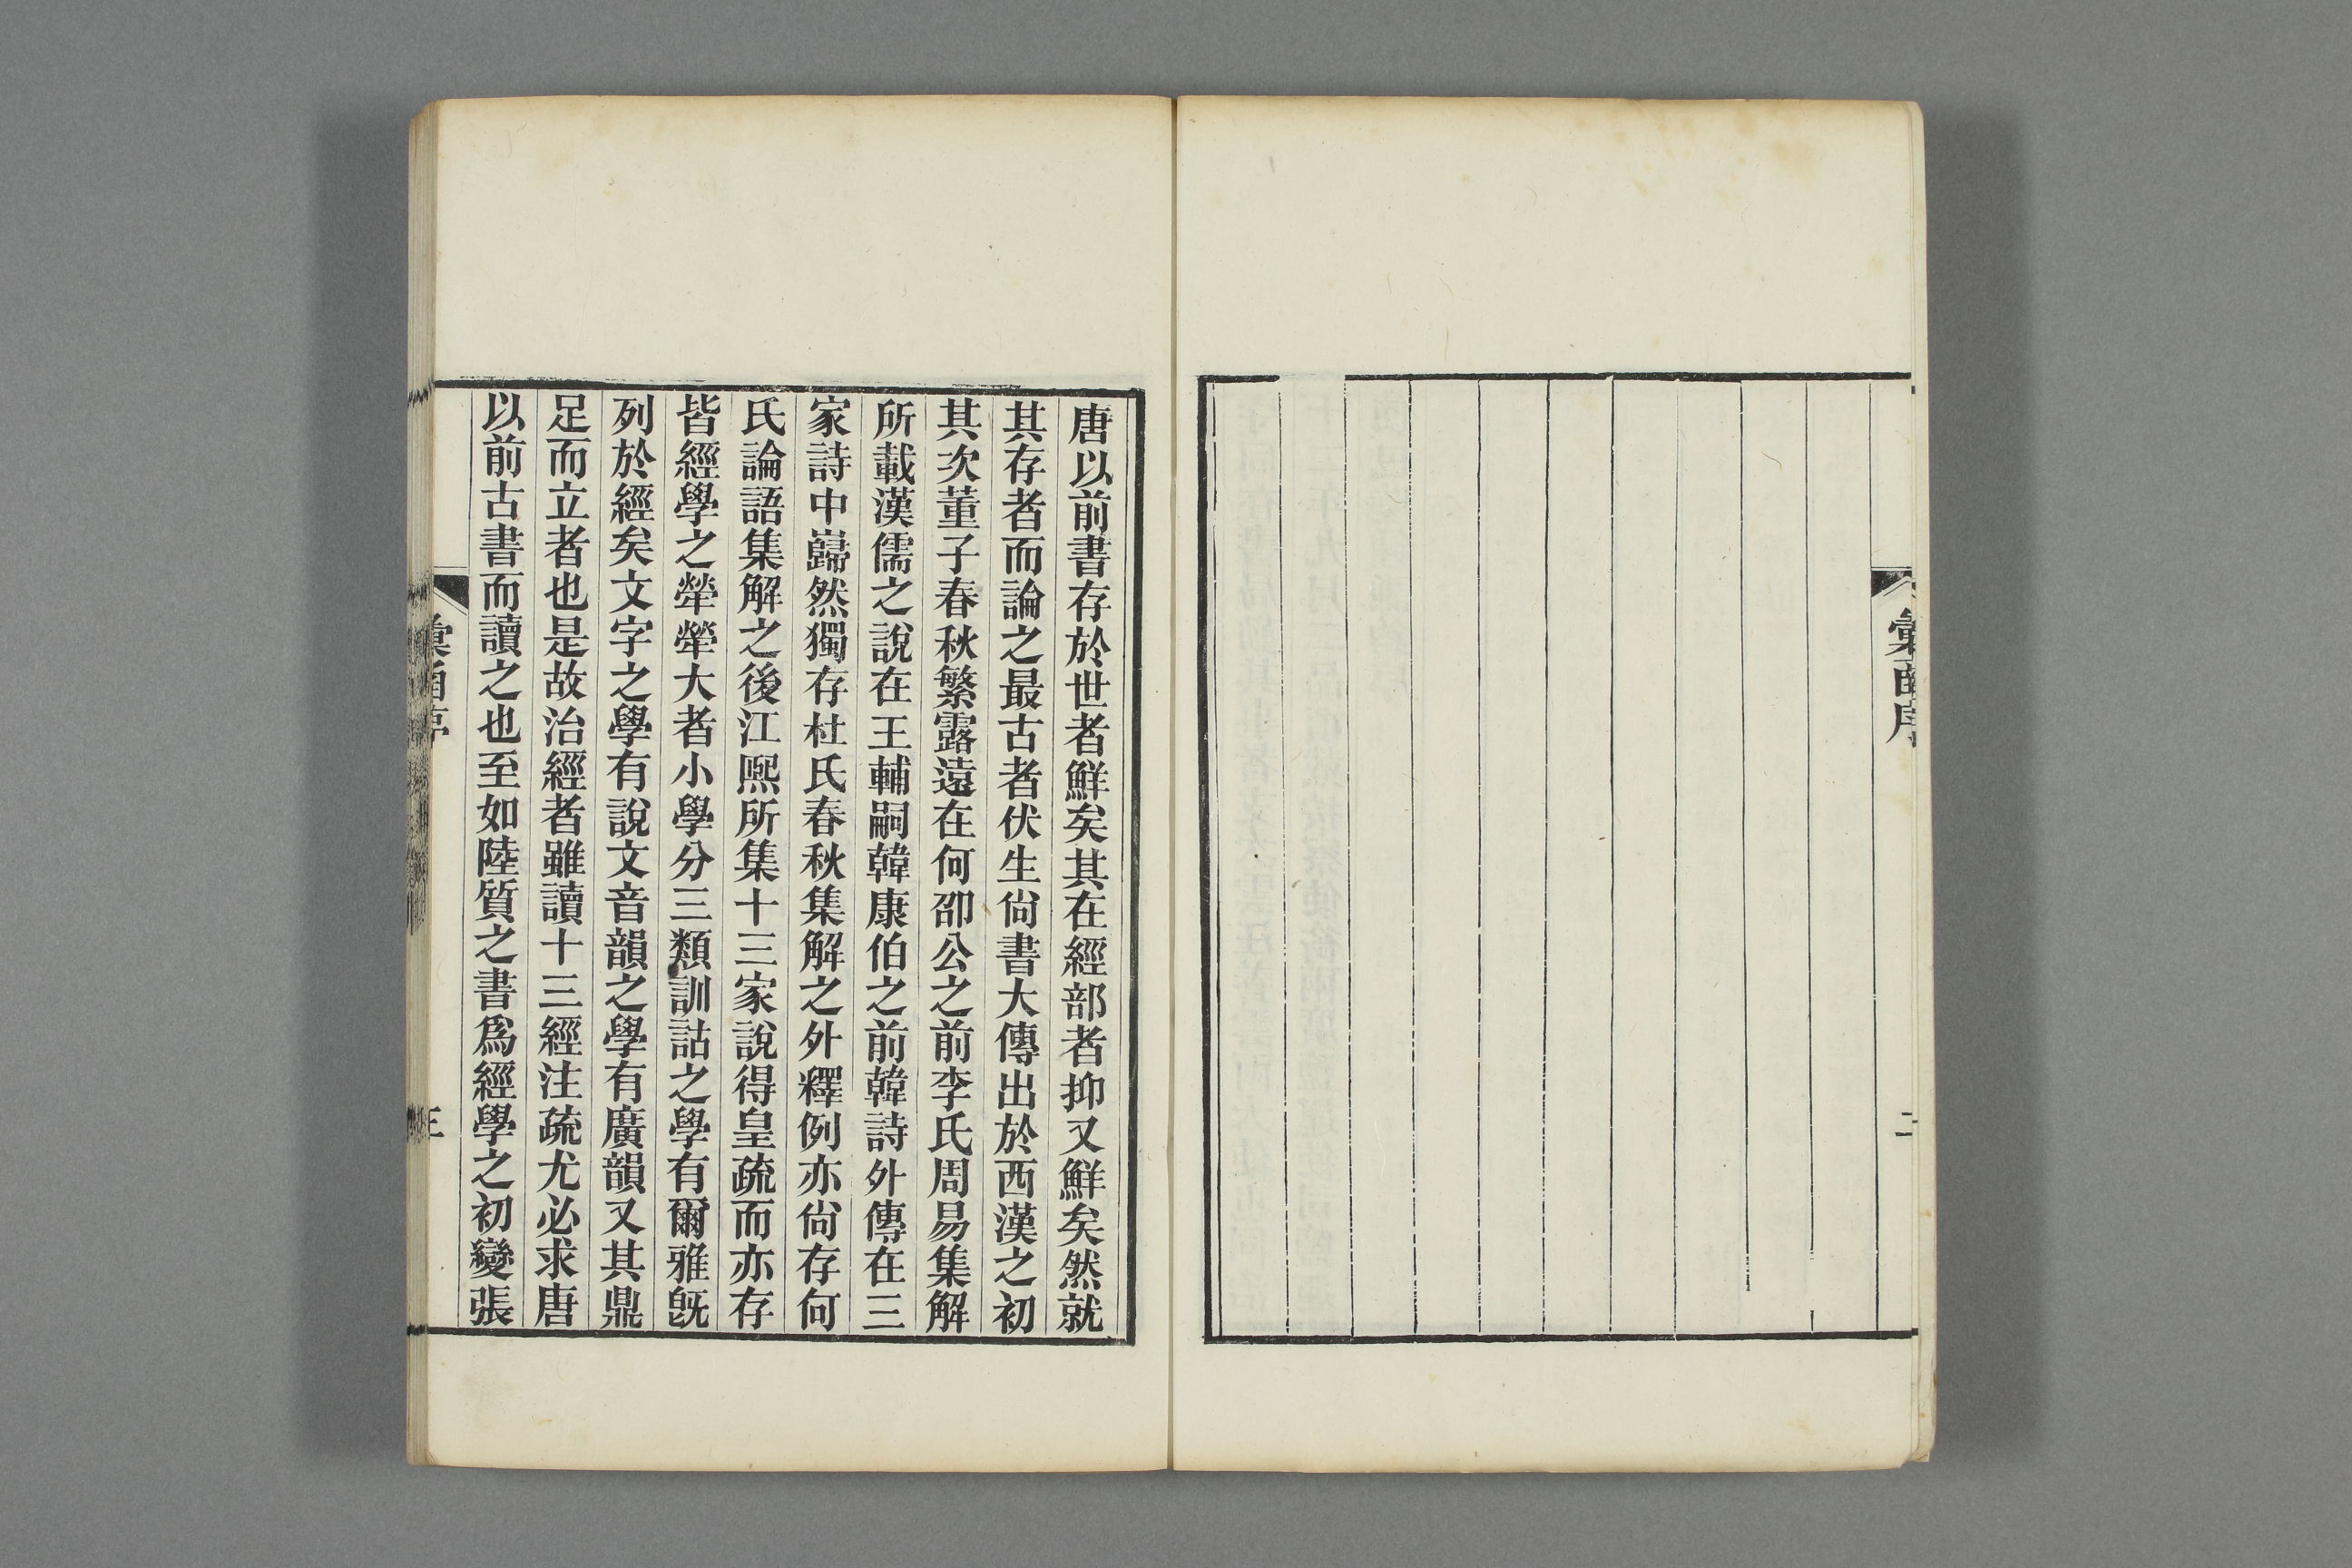 彙函序
二
唐以前書存於世者鮮矣其在經部者抑又鮮矣然就
其存者而論之最古者伏生尙書大傳出於西漢之初
其次董子春秋繁露遠在何卲公之前李氏周易集解
所載漢儒之說在王輔嗣韓康伯之前韓詩外傳在三
家詩中巋然獨存杜氏春秋集解之外釋例亦尙存何
氏論語集解之後江熙所集十三家說得皇疏而亦存
皆經學之犖犖大者小學分三類訓詁之學有爾雅旣
列於經矣文字之學有說文音韻之學有廣韻又其鼎
足而立者也是故治經者雖讀十三經注疏尤必求唐
以前古書而讀之也至如陸質之書爲經學之初變張
彙函序
三